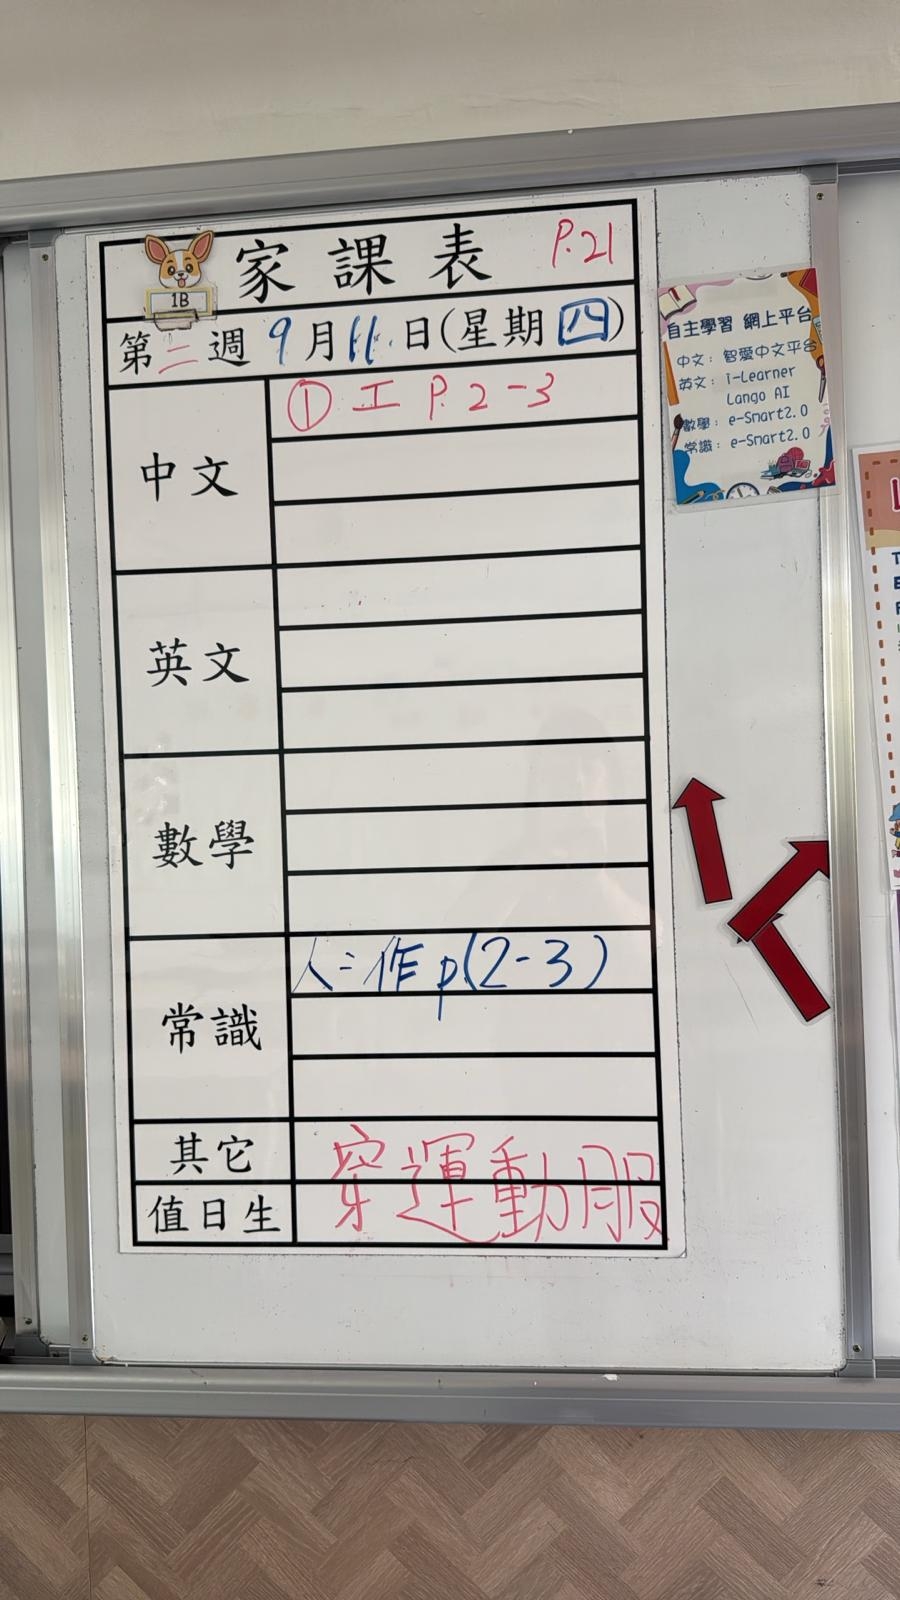 家課表 P.21
1B
第二週 9月11日(星期四)
中文
① 工 P.2-3
英文
數學
常識
人:作 p(2-3)
其它
穿運動服
值日生
自主學習 網上平台
中文：智愛中文平台
英文：i-Learner
Lango AI
數學：e-Smart2.0
常識：e-Smart2.0